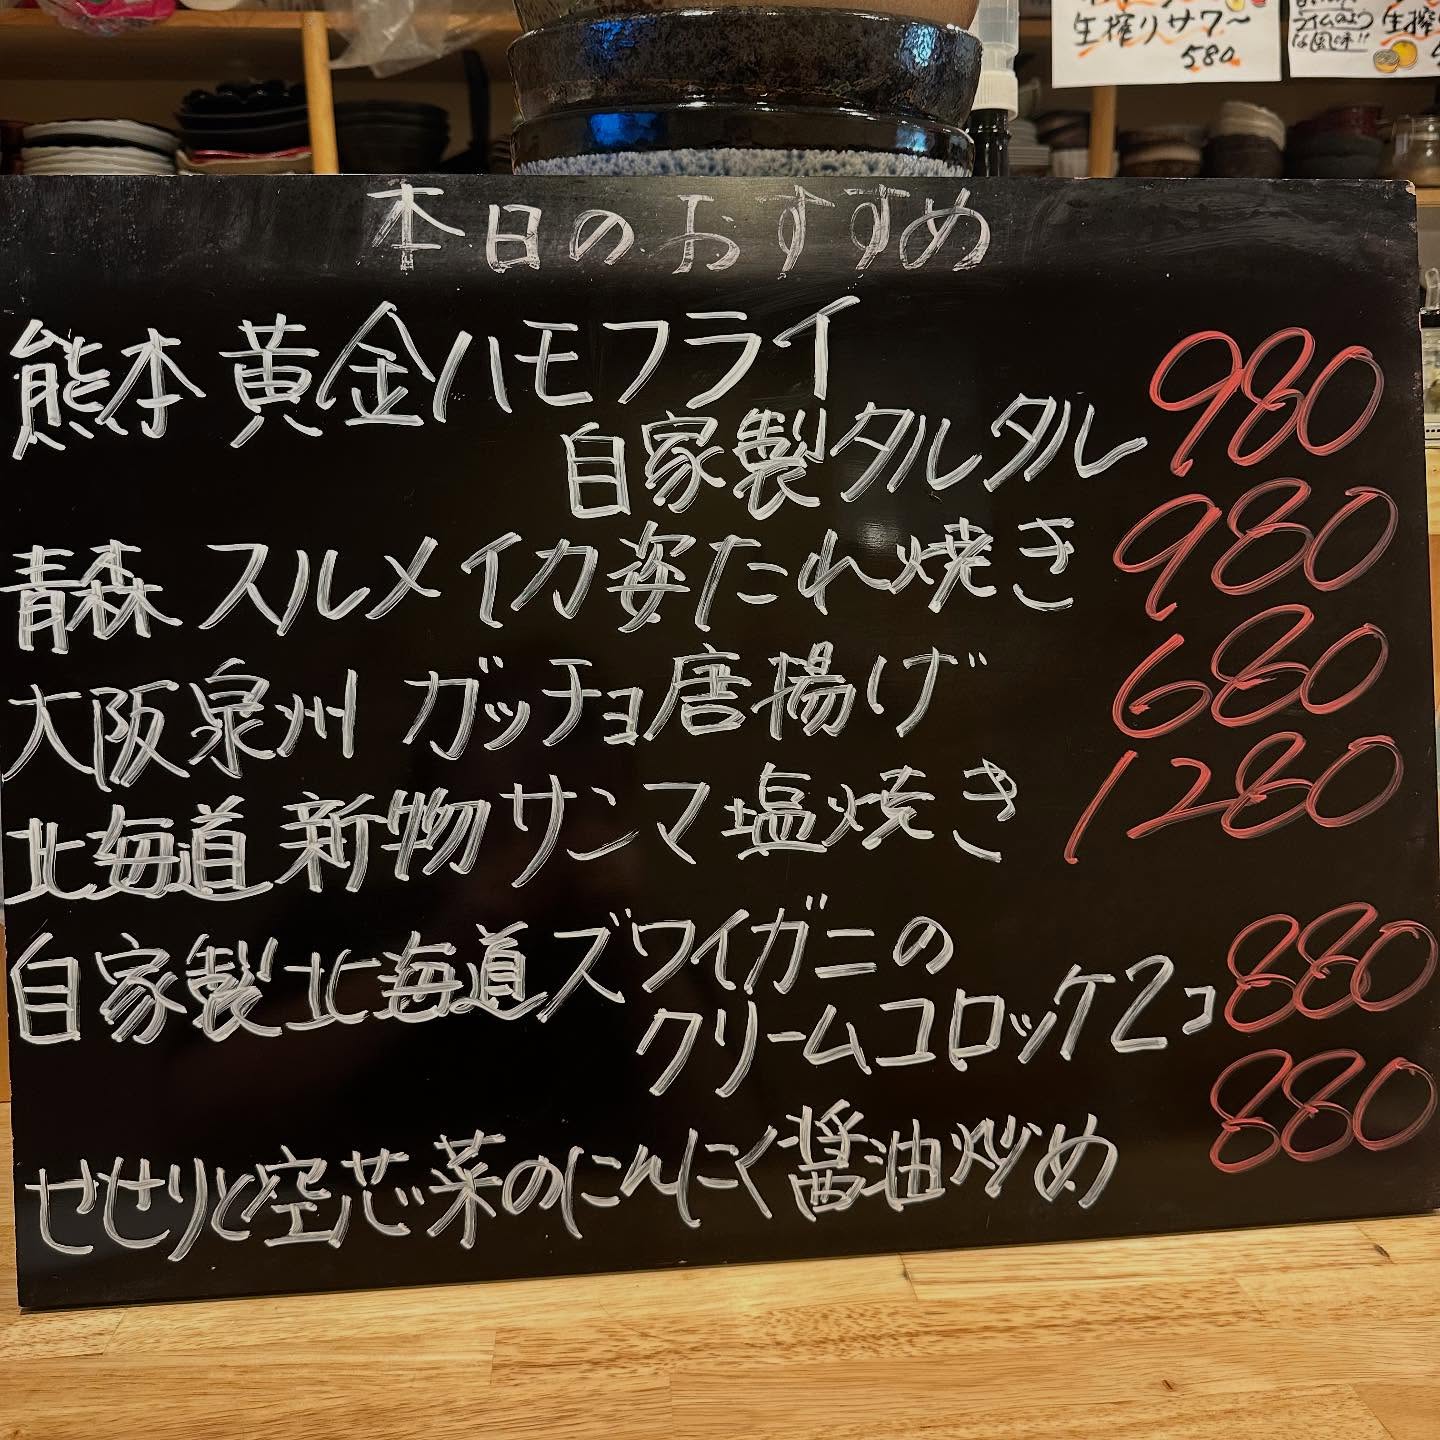 生搾りサワ～
580
生搾
本日のおすすめ
熊本 黄金ハモフライ
自家製タルタル 980
青森 スルメイカ姿たれ焼き 980
大阪泉州 ガッチョ唐揚げ 680
北海道新物サンマ塩焼き 1280
自家製北海道ズワイガニの
クリームコロッケ2コ 880
せせりと空芯菜のにんにく醤油炒め 880